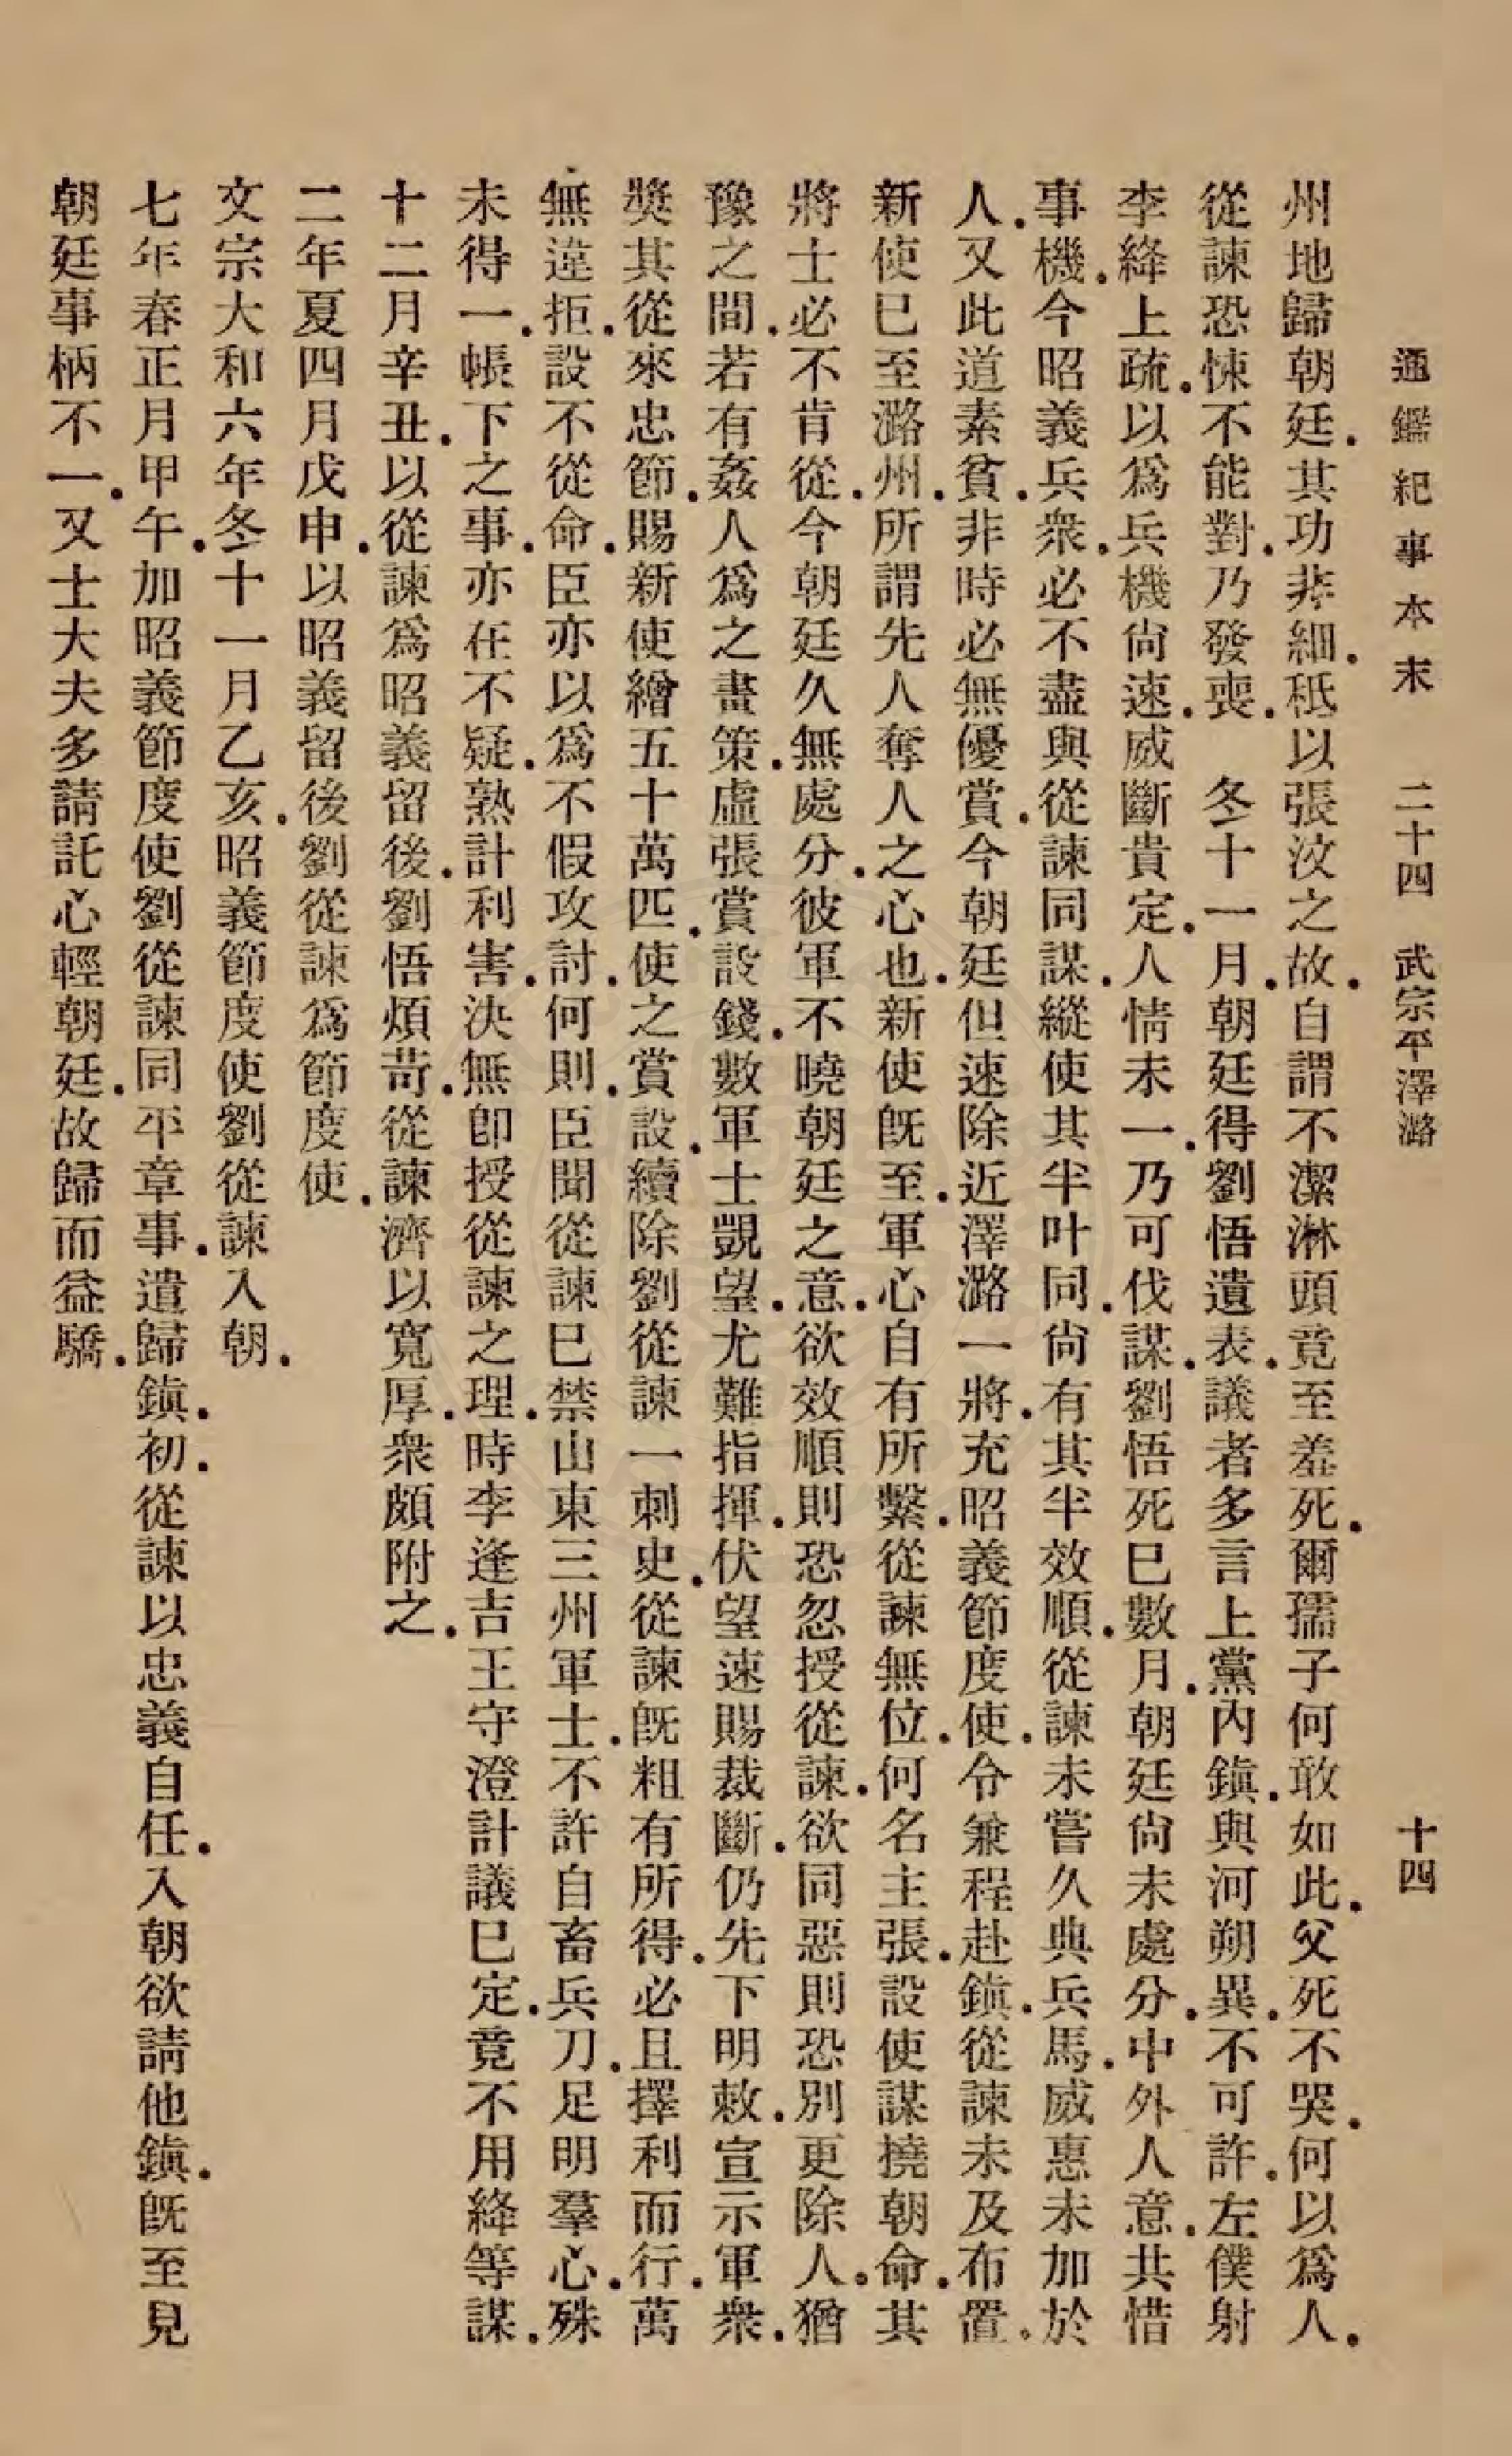 通鑑紀事本末　二十四　武宗平澤潞　十四
州地歸朝廷．其功非細．秖以張汶之故．自謂不潔淋頭竟至羞死．爾孺子何敢如此．父死不哭．何以爲人．
從諫恐悚不能對．乃發喪．　冬十一月．朝廷得劉悟遺表．議者多言上黨內鎭．與河朔異．不可許．左僕射
李絳上疏．以爲兵機尙速．威斷貴定．人情未一．乃可伐謀．劉悟死已數月．朝廷尙未處分．中外人意．共惜
事機．今昭義兵衆．必不盡與從諫同謀．縱使其半叶同．尙有其半效順．從諫未嘗久典兵馬．威惠未加於
人．又此道素貧．非時必無優賞．今朝廷但速除近澤潞一將．充昭義節度使．令兼程赴鎭．從諫未及布置．
新使已至潞州．所謂先人奪人之心也．新使旣至．軍心自有所繫．從諫無位．何名主張．設使謀撓朝命．其
將士必不肯從．今朝廷久無處分．彼軍不曉朝廷之意．欲效順則恐忽授從諫．欲同惡則恐別更除人．猶
豫之間．若有姦人爲之畫策．虛張賞設錢．數軍士覬望．尤難指揮．伏望速賜裁斷．仍先下明敕．宣示軍衆．
獎其從來忠節．賜新使繒五十萬匹．使之賞設．續除劉從諫一刺史．從諫旣粗有所得．必且擇利而行．萬
無違拒．設不從命．臣亦以爲不假攻討．何則．臣聞從諫已禁山東三州軍士．不許自畜兵刀．足明羣心．殊
未得一．帳下之事．亦在不疑．熟計利害．決無卽授從諫之理．時李逢吉王守澄計議已定．竟不用絳等謀．
十二月辛丑．以從諫爲昭義留後．劉悟煩苛．從諫濟以寬厚．衆頗附之．
二年夏四月戊申．以昭義留後劉從諫爲節度使．
文宗大和六年冬十一月乙亥．昭義節度使劉從諫入朝．
七年春正月甲午．加昭義節度使劉從諫同平章事．遣歸鎭．初．從諫以忠義自任．入朝欲請他鎭．旣至見
朝廷事柄不一．又士大夫多請託心輕朝廷．故歸而益驕．